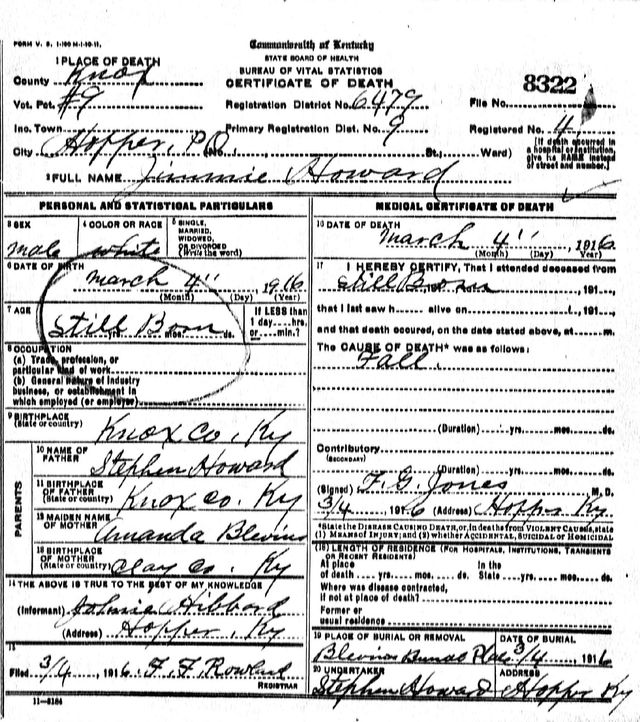 FORM V. S. 1-100 M-1-10-11.
Commonwealth of Kentucky
STATE BOARD OF HEALTH
BUREAU OF VITAL STATISTICS
CERTIFICATE OF DEATH
1 PLACE OF DEATH
County Knox
Vot. Pct. #9
Inc. Town
City Hopper, P.O. (No. St.; Ward)
Registration District No. 6479
Primary Registration Dist. No. 9
8322
File No.
Registered No. 4
[If death occurred in
a hospital or institution,
give its NAME instead
of street and number.]
2 FULL NAME Jimmie Howard
PERSONAL AND STATISTICAL PARTICULARS
3 SEX
male
4 COLOR OR RACE
white
5 SINGLE,
MARRIED,
WIDOWED,
OR DIVORCED
(Write the word)
6 DATE OF BIRTH
March 4" 1916
(Month) (Day) (Year)
7 AGE
Still Born
yrs. mos. ds.
If LESS than
1 day---hrs.
or----min.?
8 OCCUPATION
(a) Trade, profession, or
particular kind of work
(b) General nature of industry
business, or establishment in
which employed (or employer)
9 BIRTHPLACE
(State or country)
Knox Co. Ky
PARENTS
10 NAME OF
FATHER
Stephen Howard
11 BIRTHPLACE
OF FATHER
(State or country)
Knox Co. Ky
12 MAIDEN NAME
OF MOTHER
Amanda Blevins
13 BIRTHPLACE
OF MOTHER
(State or country)
Clay Co. Ky
14 THE ABOVE IS TRUE TO THE BEST OF MY KNOWLEDGE
(Informant) Johnie Hibbard
(Address) Hopper, Ky
15
Filed 3/4, 1916 F. F. Rowland
REGISTRAR
11-3184
MEDICAL CERTIFICATE OF DEATH
16 DATE OF DEATH
March 4", 1916
(Month) (Day) (Year)
17 I HEREBY CERTIFY, That I attended deceased from
Still Born, 191
that I last saw h alive on , 191
and that death occured, on the date stated above, at m.
The CAUSE OF DEATH* was as follows:
Fall.
(Duration) yrs. mos. ds.
Contributory
(SECONDARY)
(Duration) yrs. mos. ds.
(Signed) F. G. Jones M. D.
3/4 1916 (Address) Hopper Ky.
*State the DISEASE CAUSING DEATH, or, in deaths from VIOLENT CAUSES, state
(1) MEANS OF INJURY; and (2) whether ACCIDENTAL, SUICIDAL or HOMICIDAL
18) LENGTH OF RESIDENCE (FOR HOSPITALS, INSTITUTIONS, TRANSIENTS
OR RECENT RESIDENTS)
At place In the
of death yrs. mos. ds. State yrs. mos. ds.
Where was disease contracted,
if not at place of death?
Former or
usual residence
19 PLACE OF BURIAL OR REMOVAL
Blevins Burial Place
DATE OF BURIAL
3/4, 1916
20 UNDERTAKER
Stephen Howard
ADDRESS
Hopper Ky